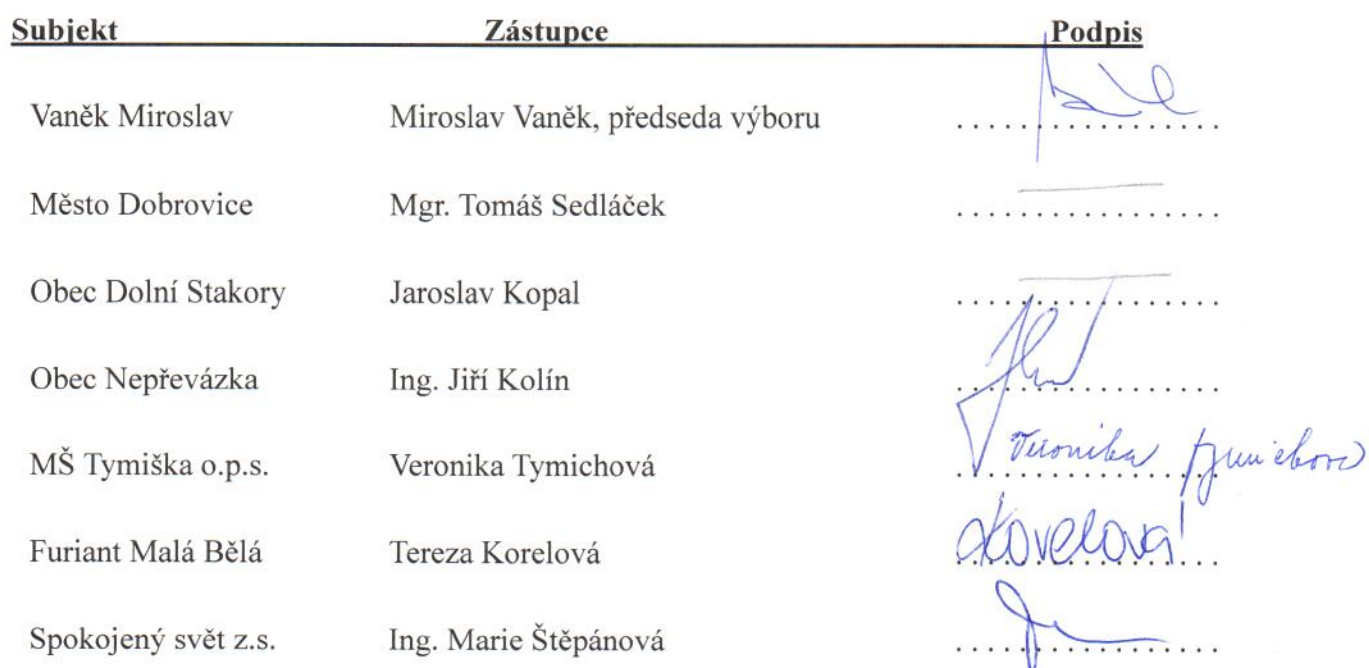 Subjekt Zástupce Podpis
Vaněk Miroslav Miroslav Vaněk, předseda výboru
Město Dobrovice Mgr. Tomáš Sedláček
Obec Dolní Stakory Jaroslav Kopal
Obec Nepřevázka Ing. Jiří Kolín
MŠ Tymiška o.p.s. Veronika Tymichová Veronika Tymichová
Furiant Malá Bělá Tereza Korelová Korelová
Spokojený svět z.s. Ing. Marie Štěpánová